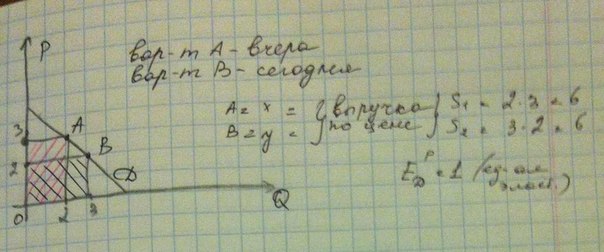 P
вар-т А - вчера
вар-т В - сегодня
А = x = { выручка } S₁ = 2·3 = 6
В = y = { по цене } S₂ = 3·2 = 6
E_D^P = 1 (ед-ая эласт.)
3
A
2
B
D
0
2
3
Q